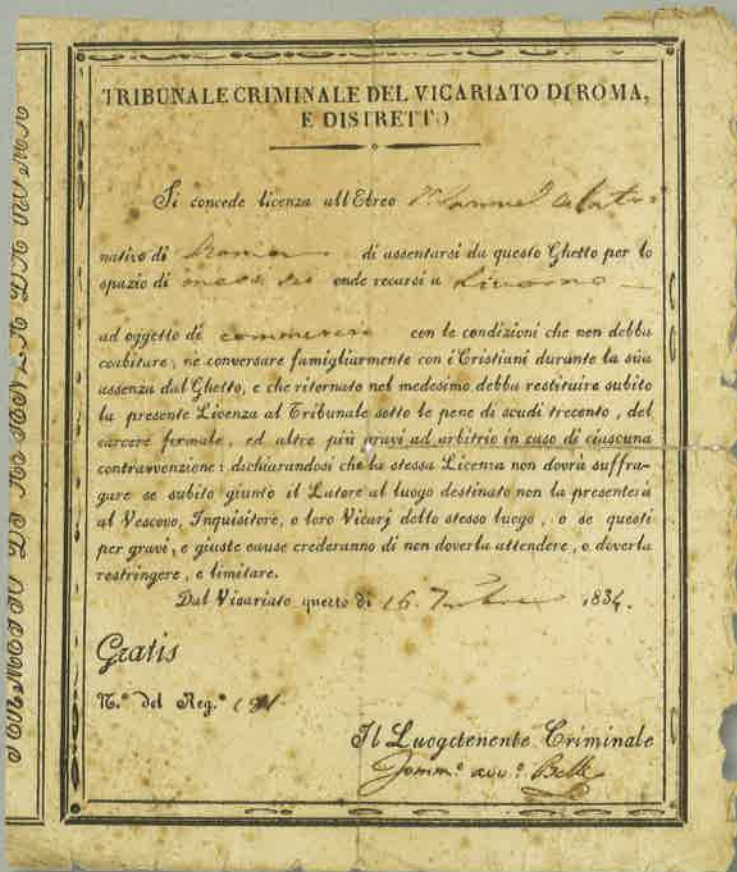 TRIBUNALE CRIMINALE DEL VICARIATO DI ROMA,
E DISTRETTO
Si concede licenza all Ebreo Samuel
nativo di Roma di assentarsi da questo Ghetto per lo
spazio di mesi sei onde recarsi a Livorno
ad oggetto di commercio con le condizioni che non debba
coabitare, ne conversare famigliarmente con i Cristiani durante la sua
assenza dal Ghetto, e che ritornato nel medesimo debba restituire subito
la presente Licenza al Tribunale sotto le pene di scudi trecento, del
carcere formale, ed altre più gravi ad arbitrio in caso di ciascuna
contravvenzione: dichiarandosi che la stessa Licenza non dovrà suffra-
gare se subito giunto il Latore al luogo destinato non la presenterà
al Vescovo, Inquisitore, o loro Vicarj dello stesso luogo, o se questi
per gravi, e giuste cause crederanno di non doverla attendere, o doverla
restringere, e limitare.
Dal Vicariato questo dì 16. 1834.
Gratis
N.° del Reg.°
Il Luogotenente Criminale